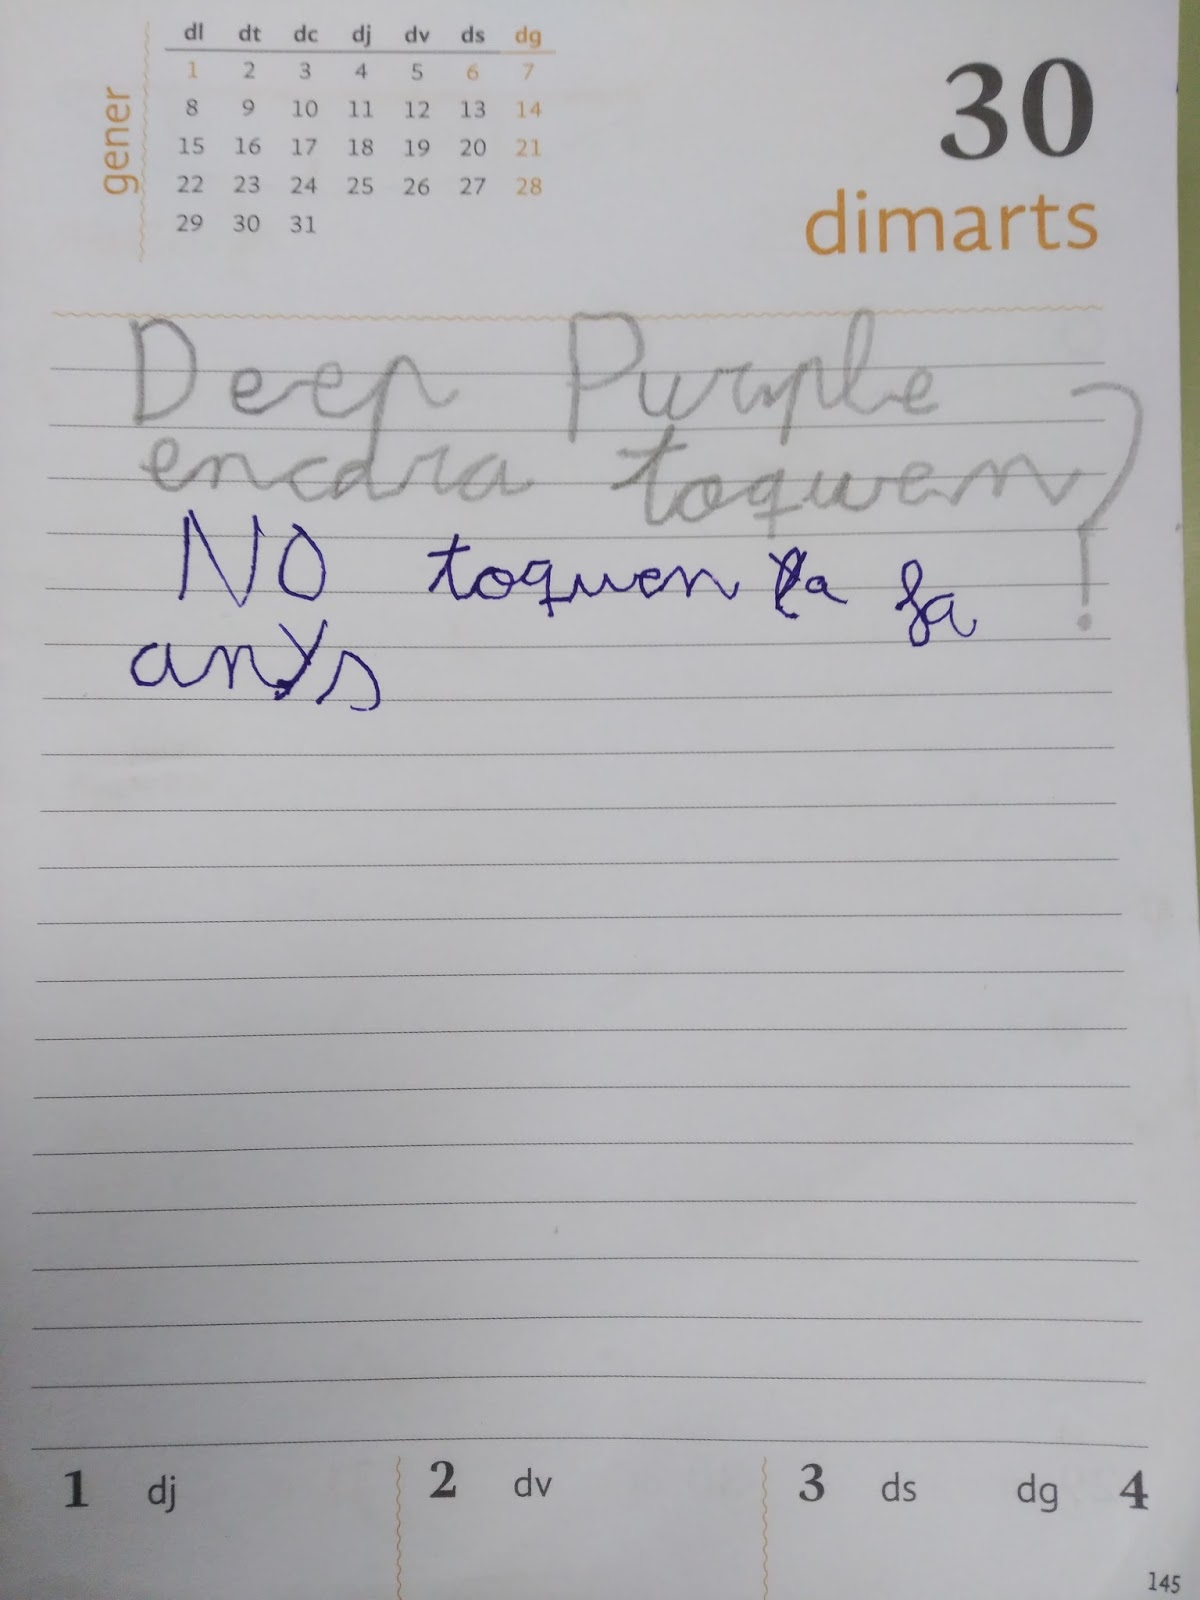 gener
dl dt dc dj dv ds dg
1 2 3 4 5 6 7
8 9 10 11 12 13 14
15 16 17 18 19 20 21
22 23 24 25 26 27 28
29 30 31
30
dimarts
Deep Purple
encara toquen?!
NO toquen ja fa
anys
1 dj 2 dv 3 ds dg 4
145